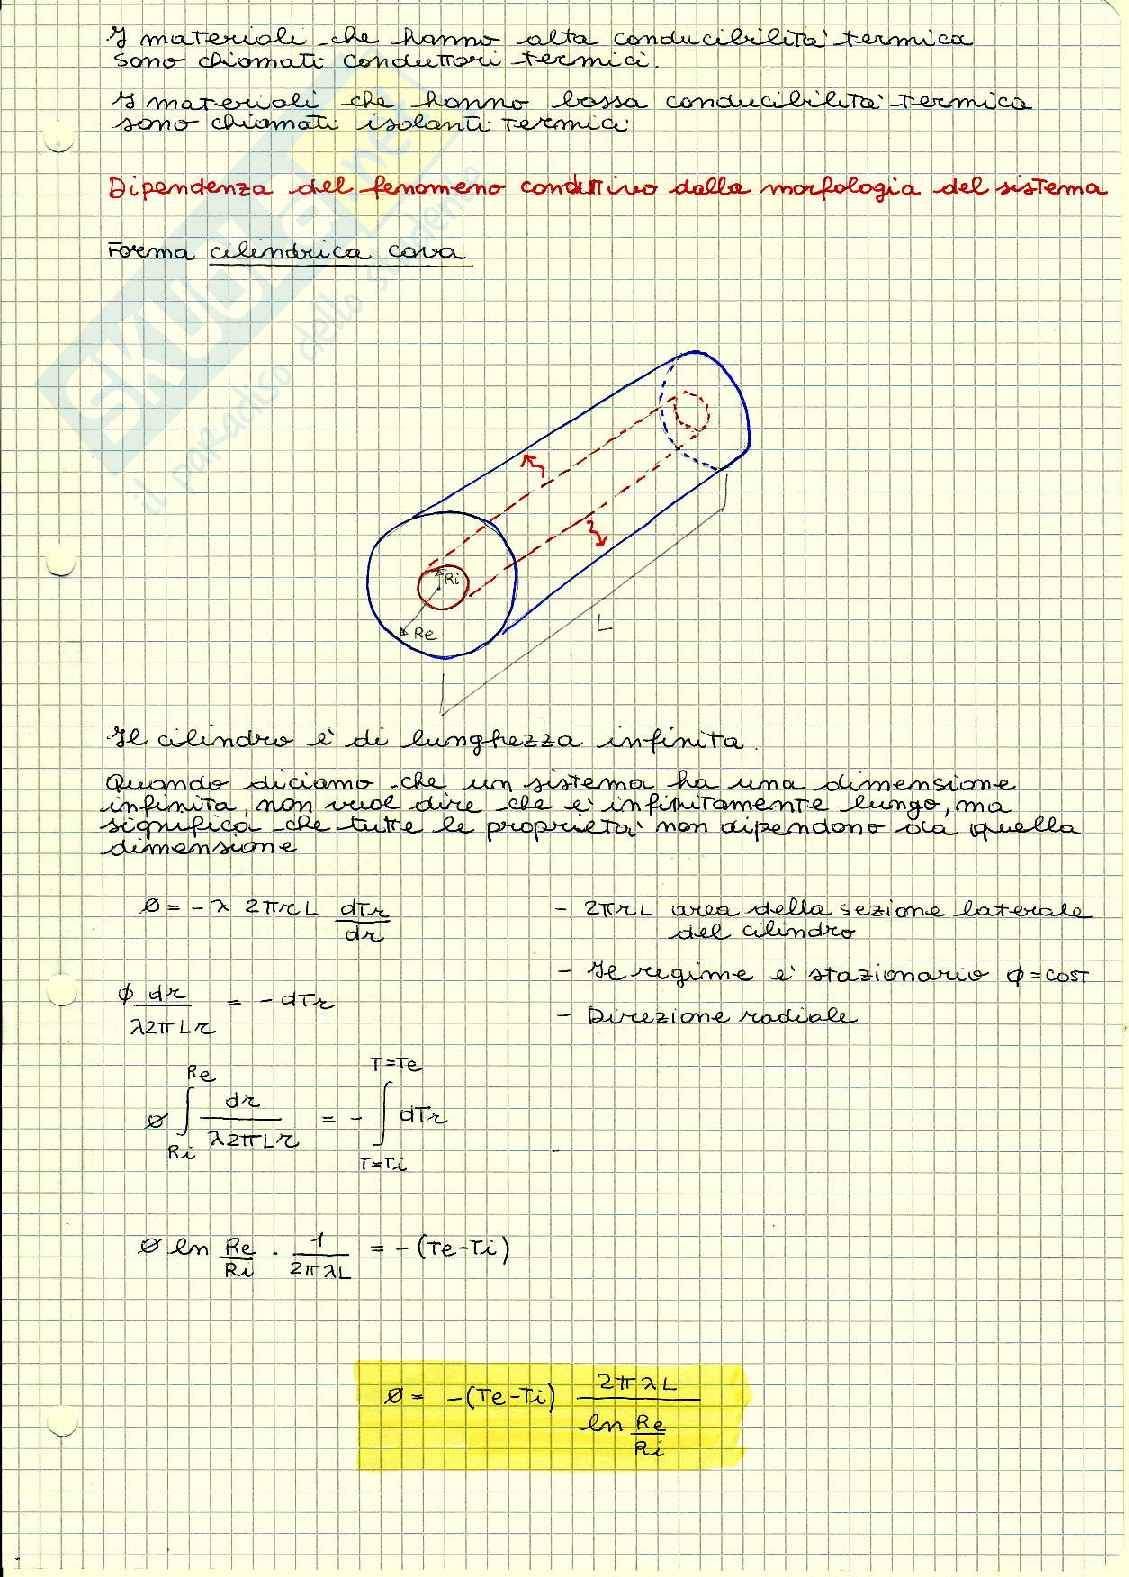 I materiali che hanno alta conducibilità termica
sono chiamati conduttori termici.
I materiali che hanno bassa conducibilità termica
sono chiamati isolanti termici
Dipendenza del fenomeno conduttivo dalla morfologia del sistema
Forma cilindrica cava
SKUOLA.NET
il paradiso dello studente
Ri
Re
L
Il cilindro è di lunghezza infinita.
Quando diciamo che un sistema ha una dimensione
infinita, non vuol dire che è infinitamente lungo, ma
significa che tutte le proprietà non dipendono da quella
dimensione
Ø = - λ 2πrL dTr/dr
- 2πrL area della sezione laterale
del cilindro
- Il regime è stazionario ϕ = cost
ϕ dr/λ2πLr = - dTr
- Direzione radiale
Ø ∫_{Ri}^{Re} dr/λ2πLr = - ∫_{T=Ti}^{T=Te} dTr
Ø ln Re/Ri · 1/2πλL = -(Te-Ti)
Ø = -(Te-Ti) 2πλL / ln Re/Ri